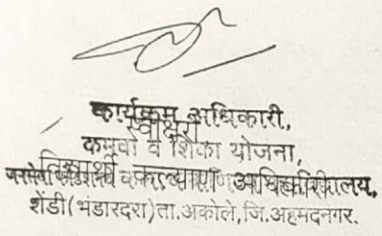 कार्यक्रम अधिकारी,
स्वाक्षरी
कमवा व शिका योजना,
विद्यार्थी कल्याण अधिकारी
शेंडी(भंडारदरा)ता.अकोले,जि.अहमदनगर.